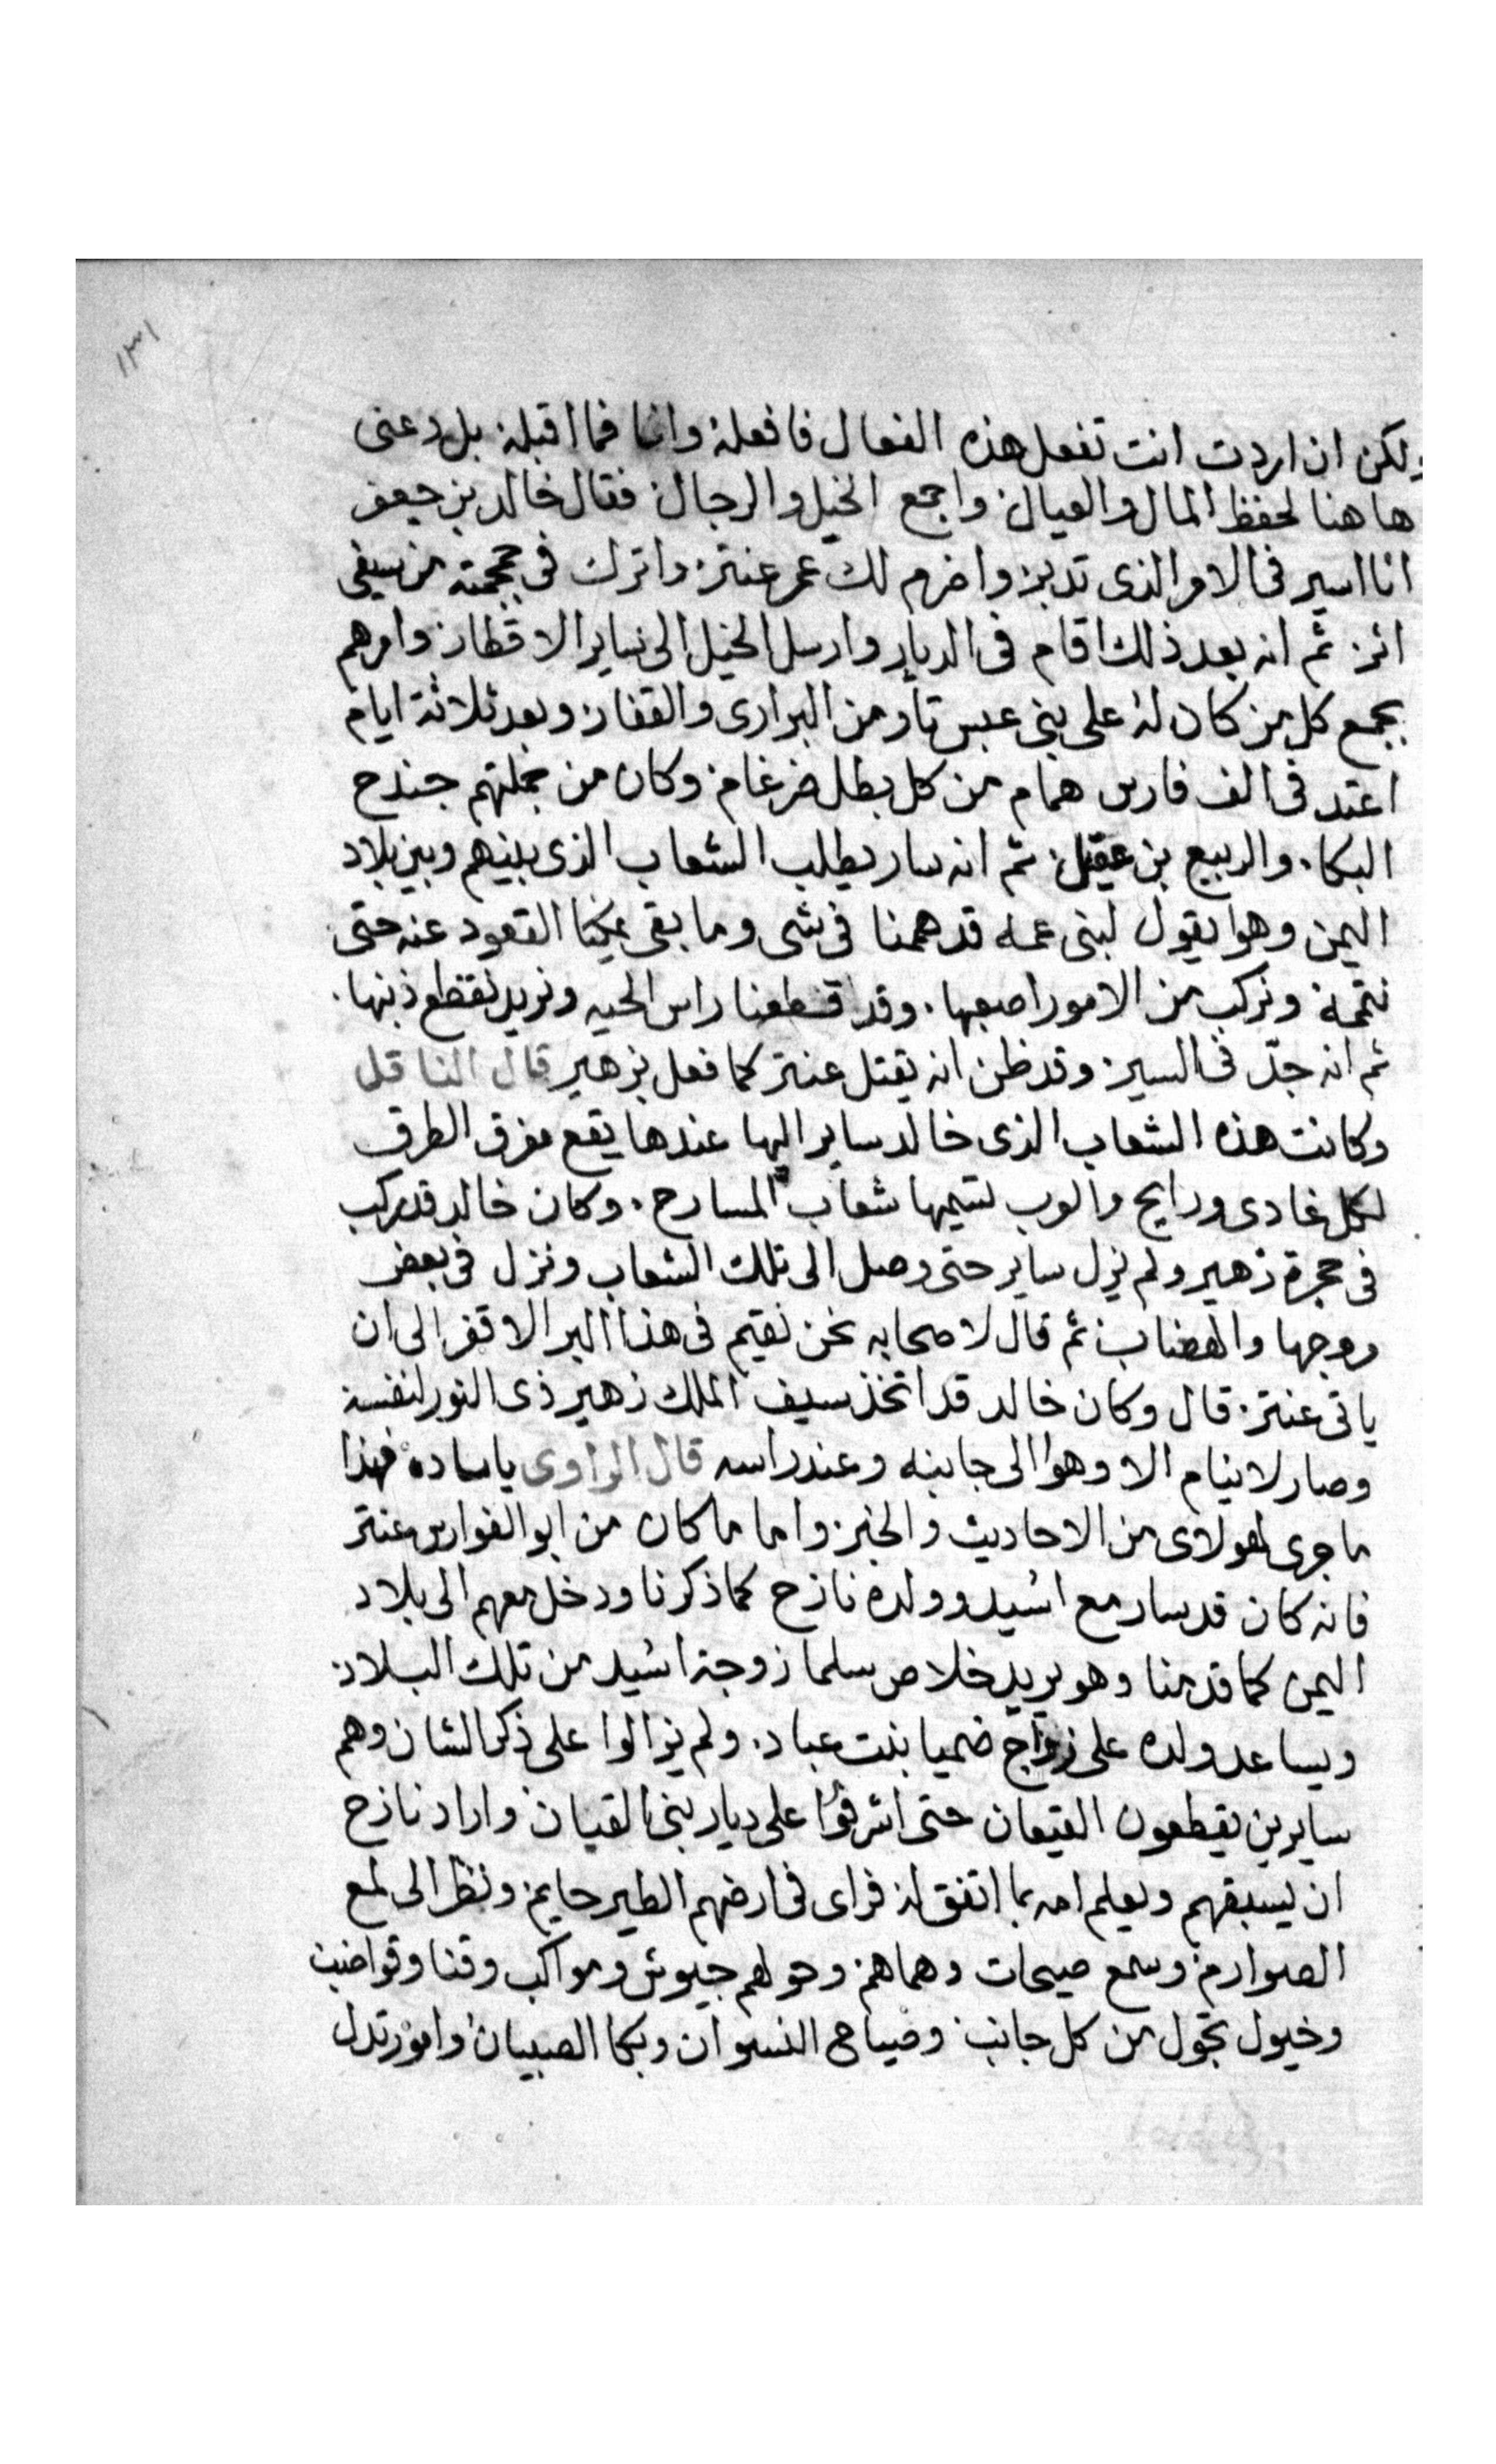 ١٣١
ولكن ان اردت انت تفعل هذه الفعال فافعله وانا فما اقبله بل دعنى
هاهنا لحفظ المال والعيال واجمع الخيل والرجال فقال خالد بن جعفر
انا اسير فى الامر الذى تدبره واخرم لك عمر عنتر واترك فى جمجمته من سيفى
اثر ثم انه بعد ذلك اقام فى الديار وارسل الخيل الى ساير الاقطار وامرهم
بجمع كل من كان له على بنى عبس تار من البرارى والقفار وبعد ثلاثة ايام
اعتد فى الف فارس همام من كل بطل ضرغام وكان من جملتهم جندح
البكا والربيع بن عقيل ثم انه سار يطلب الشعاب الذى بينهم وبين بلاد
اليمن وهوا يقول لبنى عمه قد هممنا فى شى وما بقى يمكنا القعود عنه حتى
نتممه ونركب من الامور اصعبها وقد قطعنا راس الحيه ونريد نقطع ذنبها
ثم انه جدّ فى السير وقد ظن انه يقتل عنتر كما فعل بزهير قال الناقل
وكانت هذه الشعاب الذى خالد ساير اليها عندها يقع مفرق الطرق
لكل غادى ورايح والوب تسميها شعاب المسارح وكان خالد قد ركب
فى حجرة زهير ولم يزل ساير حتى وصل الى تلك الشعاب ونزل فى بعض
روجها والهضاب ثم قال لاصحابه نحن نقيم فى هذا البر الاقفر الى ان
ياتى عنتر قال وكان خالد قد اتخذ سيف الملك زهير ذى النور لنفسه
وصار لا ينام الا وهوا الى جانبه وعند راسه قال الراوى ياساده فهذا
ما جرى لهولاى من الاحاديث والخبر واما ما كان من ابو الفوارس عنتر
فانه كان قد سار مع اسيد وولده نازح كما ذكرنا ودخل معهم الى بلاد
اليمن كما قدمنا وهو يريد خلاص سلما زوجة اسيد من تلك البلاد
ويساعد ولده على زواج ضميا بنت عباد ولم يزالوا على ذكر الشان وهم
سايرين يقطعون القيعان حتى اشرفوا على ديار بنى القيان واراد نازح
ان يسبقهم ويعلم امه بما اتفق له فراى فى ارضهم الطير حايم ونظر الى لمع
الصوارم وسمع صيحات وهماهم وحولهم جيوش ومواكب وقنا وقواضب
وخيول تجول من كل جانب وصياح النسوان وبكا الصبيان وامور تدل